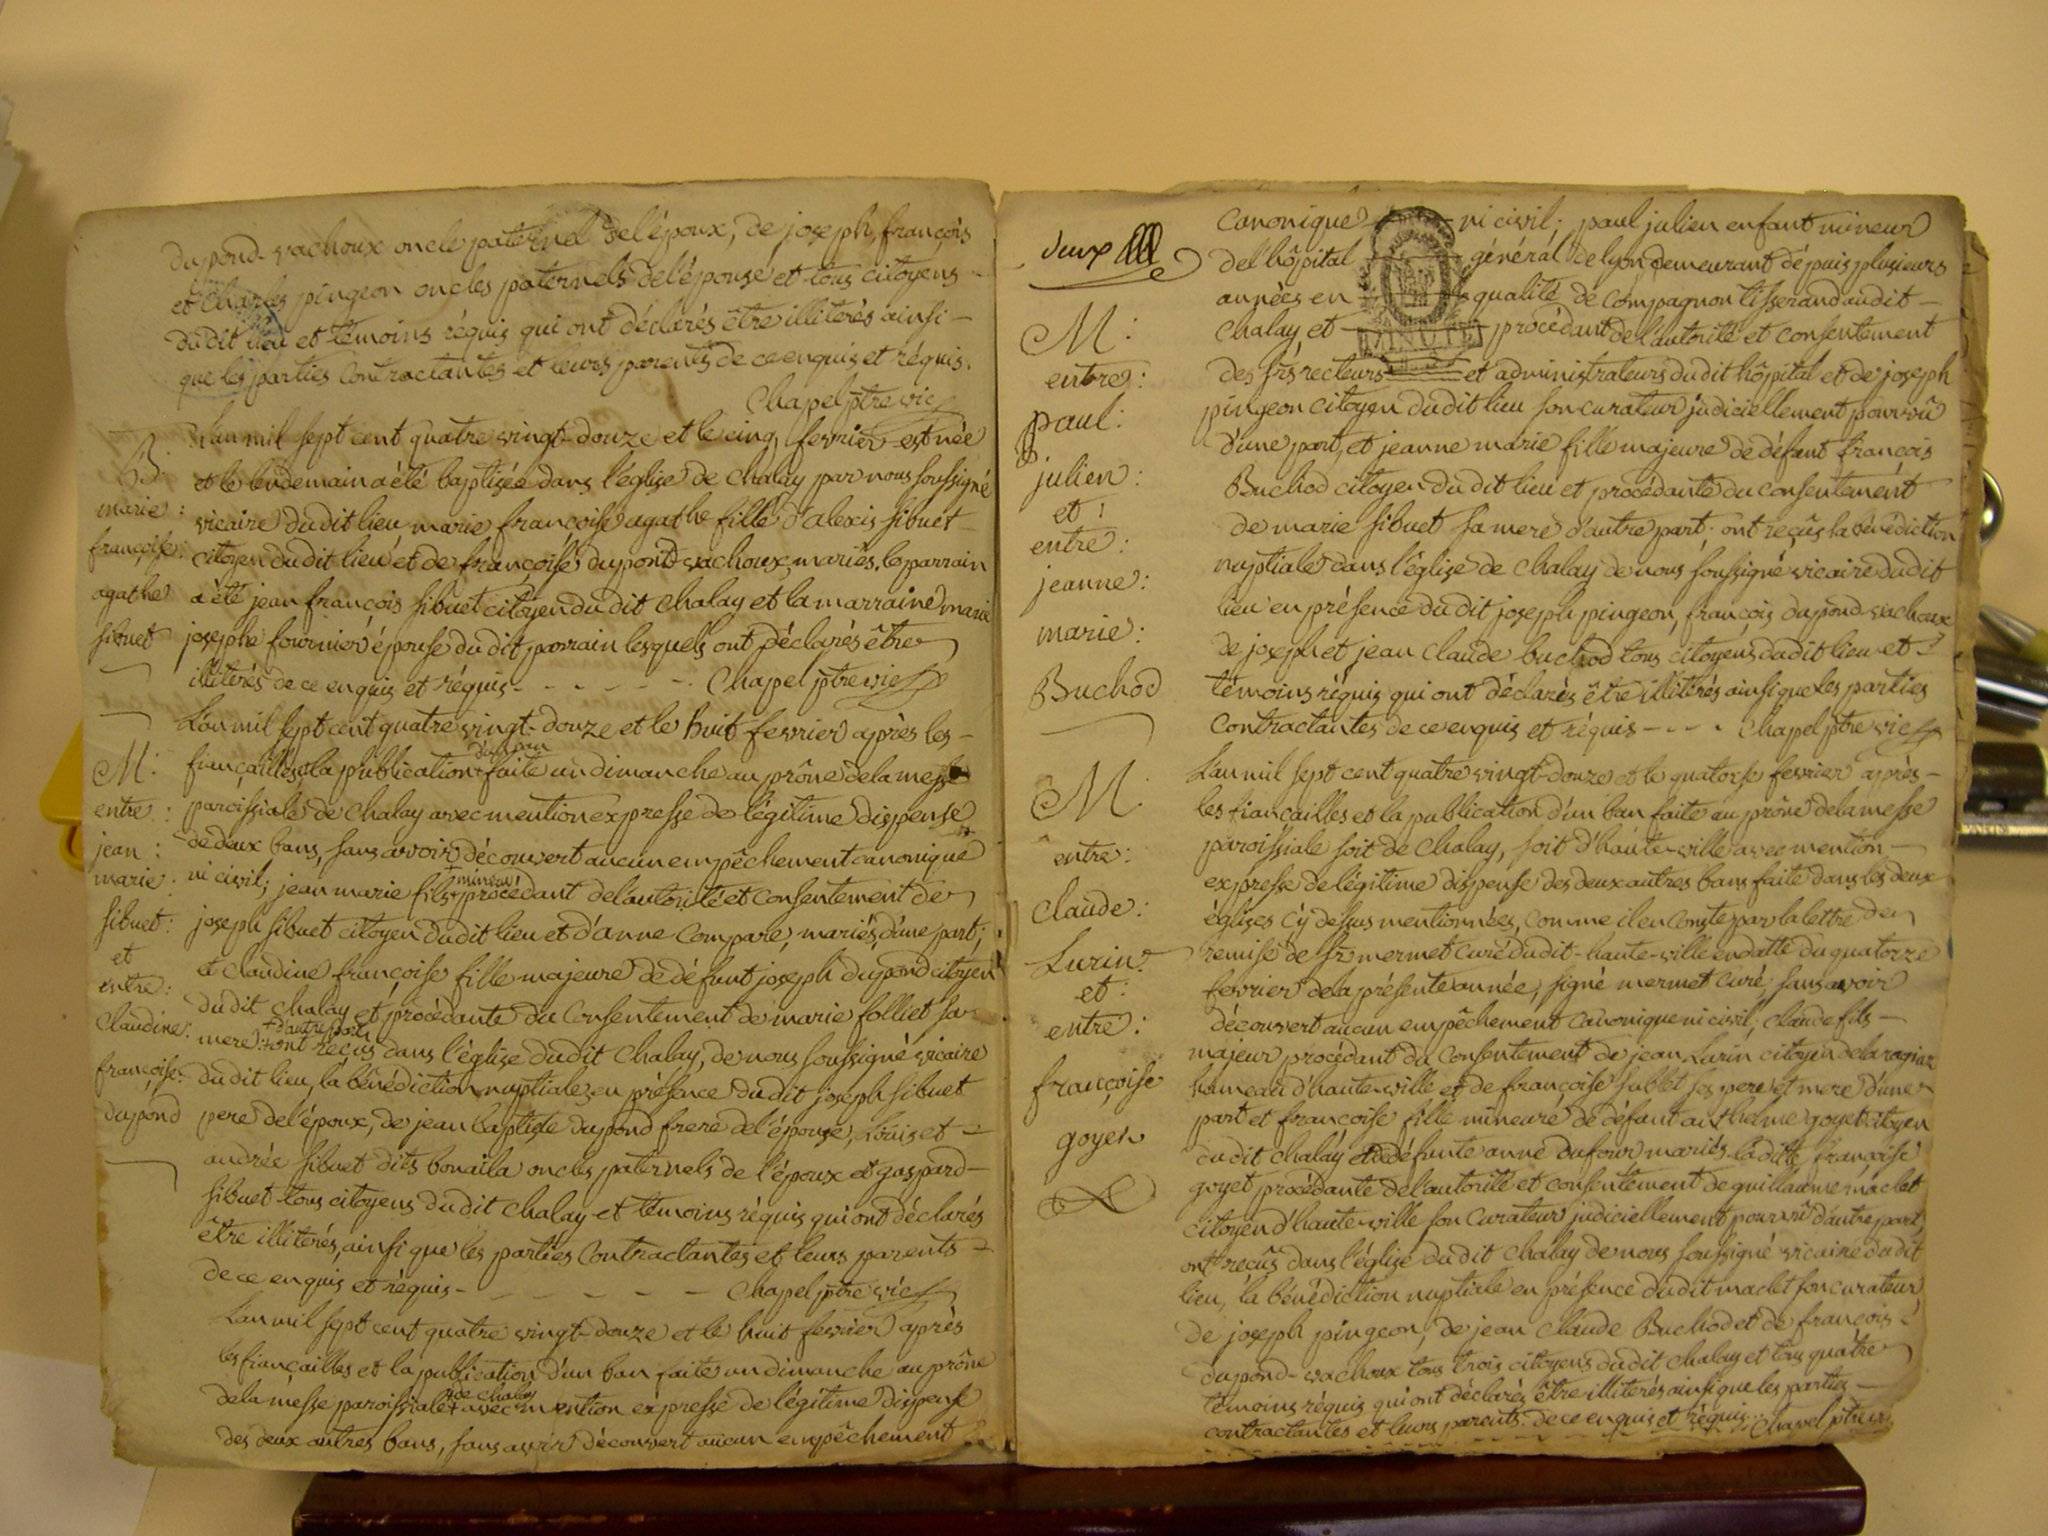 dupond-vachoux oncle paternel de l'époux, de joseph, françois
et Charles pingeon oncles paternels de l'épouse et tous citoyens
dudit lieu et témoins réquis qui ont déclarés être illiterés ainsi-
que les parties Contractantes et leurs parents de ce enquis et réquis.
Chapel ptre vic
B:
marie:
françoise:
agathe
sibuet
L'an mil sept cent quatre vingt-douze et le cinq fevrier est née
et le lendemain a été baptisée dans l'église de Chalay par nous soussigné
vicaire dudit lieu marie françoise agathe fille d'alexis sibuet
citoyen dudit lieu et de françoise dupond vachoux, mariés. le parrain
a été jean françois sibuet citoyen du dit Chalay et la marraine marie
josephe fournier épouse du dit parrain lesquels ont déclarés être
illiterés de ce enquis et réquis - - - - - - Chapel ptre vic
M:
entre:
jean:
marie:
sibuet:
et
entre:
Claudine:
françoise:
dupond
L'an mil sept cent quatre vingt-douze et le huit fevrier après les-
d'un ban
françailles et la publication + faite un dimanche au prône de la messe
paroissiale de Chalay avec mention expresse de légitime dispense
de deux bans, sans avoir découvert aucun empêchement canonique
+ mineur
ni civil; jean marie fils + procédant de l'autorité et Consentement de
joseph sibuet citoyen dudit lieu et d'anne Compare, mariés, d'une part;
et claudine françoise fille majeure de défunt joseph dupond citoyen
du dit Chalay et procédante du Consentement de marie folliet sa
+ d'autre part
mere + ont reçus dans l'église dudit Chalay, de nous soussigné vicaire
du dit lieu, la bénédiction nuptiale en présence du dit joseph sibuet
pere de l'époux, de jean baptiste dupond frere de l'épouse, Louis et
andrée sibuet dits bonaila oncles paternels de l'époux et gaspard-
sibuet tous citoyens du dit Chalay et témoins réquis qui ont déclarés
être illiterés, ainsi que les parties Contractantes et leurs parents
de ce enquis et réquis - - - - - - Chapel ptre vic
L'an mil sept cent quatre vingt-douze et le huit fevrier après
les fiancailles et la publication d'un ban faite un dimanche au prône
+ de chalay
de la messe paroissiale + avec mention expresse de légitime dispense
des deux autres bans, sans avoir découvert aucun empêchement
deux
M:
entre:
paul:
julien:
et:
entre:
jeanne:
marie:
Buchod
Canonique ni civil; paul julien enfant mineur
de l'hôpital général de lyon demeurant dépuis plusieurs
années en qualité de Compagnon tisserand audit-
Chalay, et procédant de l'autorité et consentement
MINUTE
des srs recteurs et administrateurs dudit hôpital et de joseph
pingeon citoyen dudit lieu son curateur judiciellement pourvû
d'une part, et jeanne marie fille majeure de défunt françois
Buchod citoyen du dit lieu et procédante du consentement
de marie sibuet sa mere d'autre part; ont reçûs la bénédiction
nuptiale dans l'église de Chalay de nous soussigné vicaire dudit
lieu en présence du dit joseph pingeon, françois dupond-vachoux
de joseph et jean claude buchod tous citoyens dudit lieu et
témoins réquis qui ont déclarés être illiterés ainsi que les parties
Contractantes de ce enquis et réquis - - - - Chapel ptre vic
M.
entre:
Claude:
Lurin
et:
entre:
françoise
goyet
L'an mil sept cent quatre vingt-douze et le quatorse fevrier après-
les fiançailles et la publication d'un ban faite au prône de la messe
paroissiale soit de Chalay, soit d'haute-ville avec mention-
expresse de légitime dispense des deux autres bans faite dans les deux
églises cy dessus mentionnées, Comme il en Conste par la lettre de
remise de sr mermet curé dudit-haute-ville en datte du quatorze
fevrier de la présente année, signé mermet curé, sans avoir
découvert aucun empêchement Canonique ni civil; claude fils-
majeur procédant du Consentement de jean Lurin citoyen de
hameau d'haute-ville et de françoise sublet ses pere et mere d'une
part et françoise fille mineure de défunt anthelme goyet citoyen
du dit Chalay et de défunte anne dufour mariés. la ditte françoise
goyet procédante de l'autorité et consentement de guillaume maclet
citoyen d'haute-ville son Curateur judiciellement pourvû d'autre part;
ont reçûs dans l'église du dit Chalay de nous soussigné vicaire du dit
lieu, la bénédiction nuptiale en présence dudit maclet son curateur,
de joseph pingeon, de jean Claude Buchod et de françois
dupond-vachoux tous trois citoyens dudit Chalay et tous quatre
témoins réquis qui ont déclarés être illiterés ainsi que les parties-
contractantes et leurs parents. de ce enquis et réquis. Chapel ptre vic